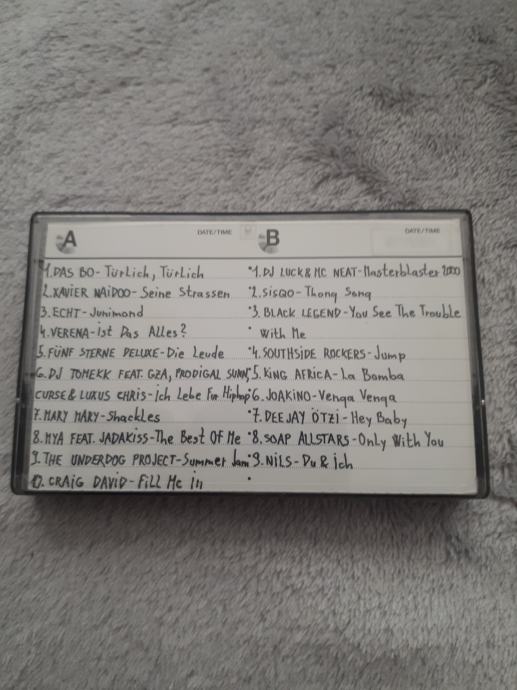 A DATE/TIME
1. DAS BO - Türlich, Türlich
2. XAVIER NAIDOO - Seine Strassen
3. ECHT - Junimond
4. VERENA - ist Das Alles?
5. FÜNF STERNE DELUXE - Die Leude
6. DJ TOMEKK FEAT. GZA, PRODIGAL SUNN,
CURSE & LUXUS CHRIS - ich Lebe Für Hiphop
7. MARY MARY - Shackles
8. MYA FEAT. JADAKISS - The Best Of Me
9. THE UNDERDOG PROJECT - Summer Jam
10. CRAIG DAVID - Fill Me in
B DATE/TIME
1. DJ LUCK & MC NEAT - Masterblaster 2000
2. SISQO - Thong Song
3. BLACK LEGEND - You See The Trouble
With Me
4. SOUTHSIDE ROCKERS - Jump
5. KING AFRICA - La Bomba
6. JOAKINO - Venga Venga
7. DEEJAY ÖTZI - Hey Baby
8. SOAP ALLSTARS - Only With You
9. NILS - Du & ich